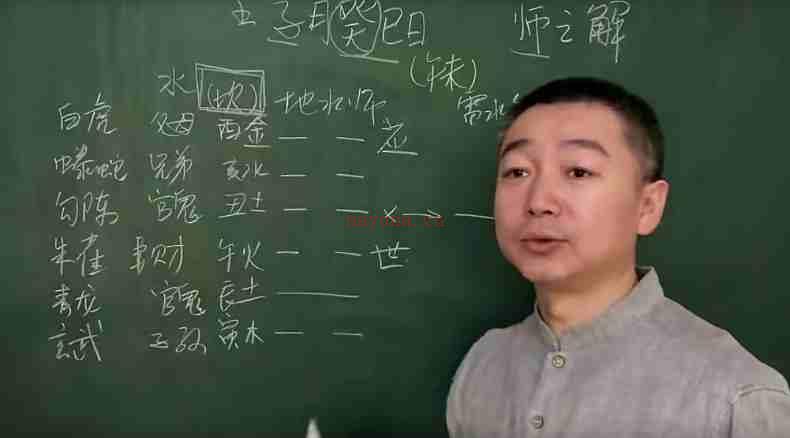 子月癸巳日 师之解
(午未)
水 (坎) 地水师 雷水
白虎 父母 酉金 — — 应
螣蛇 兄弟 亥水 — —
勾陈 官鬼 丑土 — — × → —
朱雀 妻财 午火 — — 世
青龙 官鬼 辰土 ——
玄武 子孙 寅木 — —